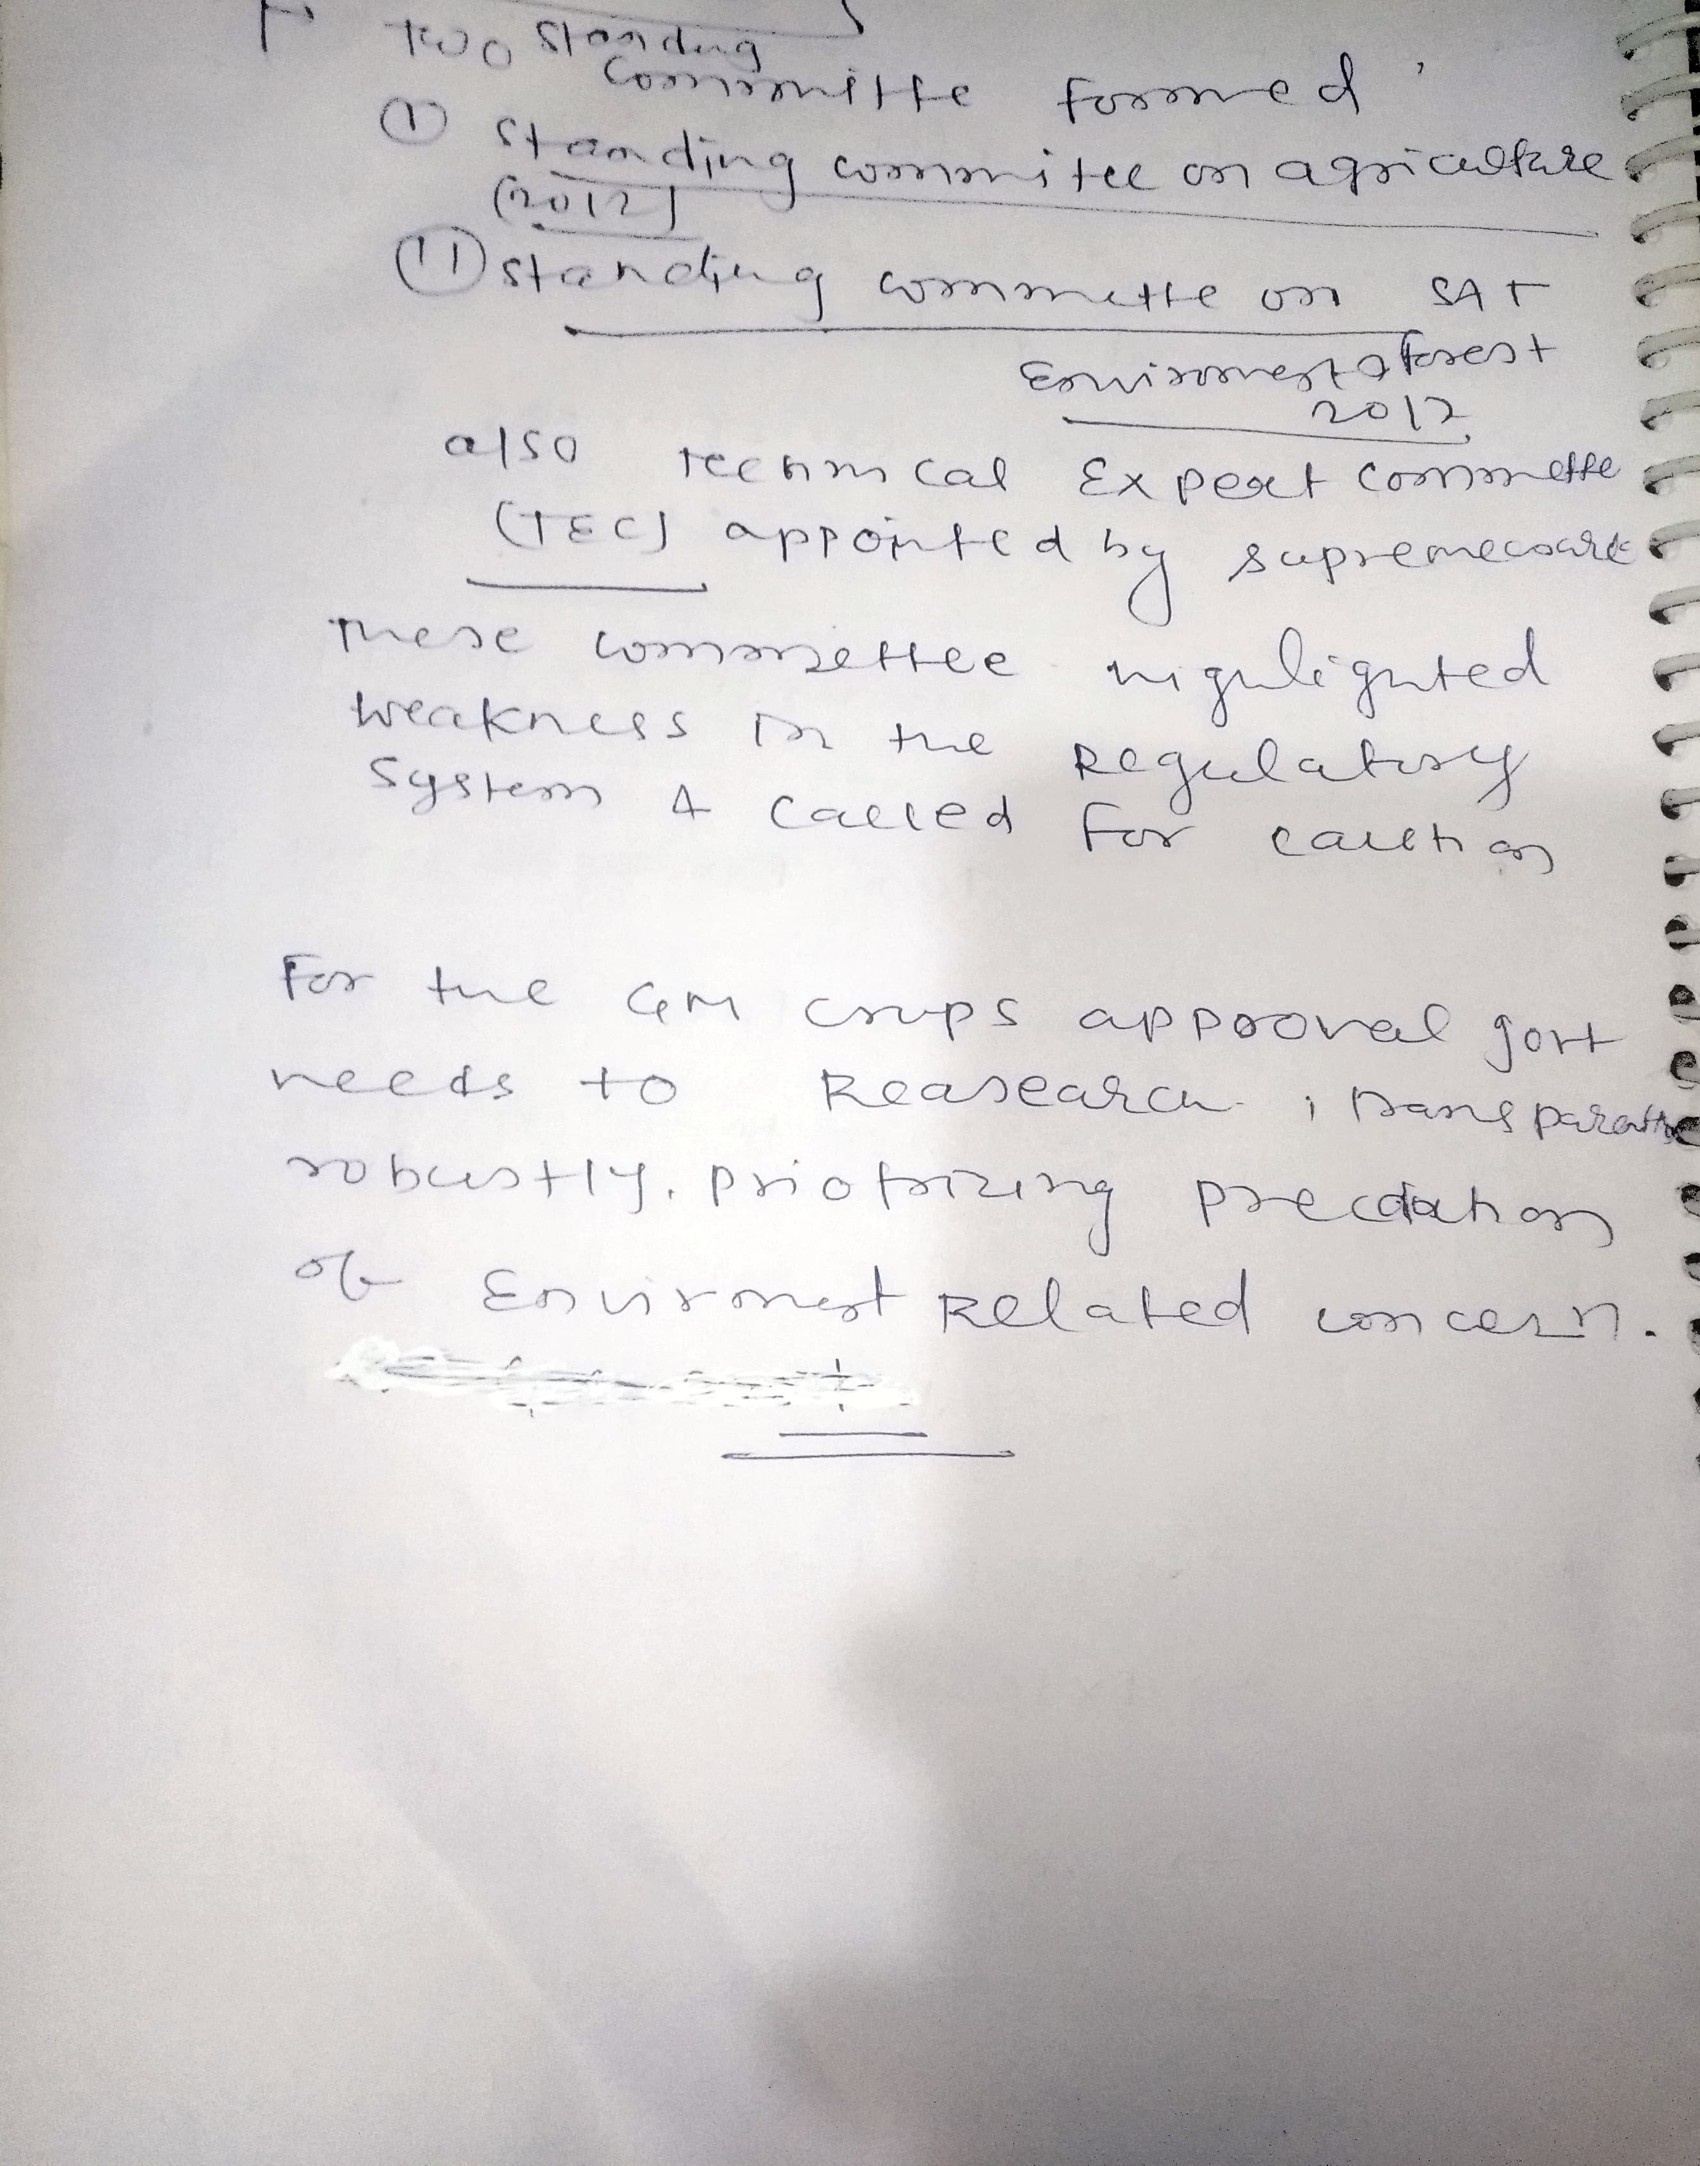 Two Standing
Committe formed
(I) Standing commitee on agriculture
(2012)
(II) standing committe on S&T
Enviroment & forest
2017
also Technical Expert Committe
(TEC) appointed by supremecourt
These committee highlighted
weakness in the Regulatory
System & called for caution
For the GM crops approval govt
needs to Reasearch,
robustly. Priotrizing
of Enviroment Related concern.